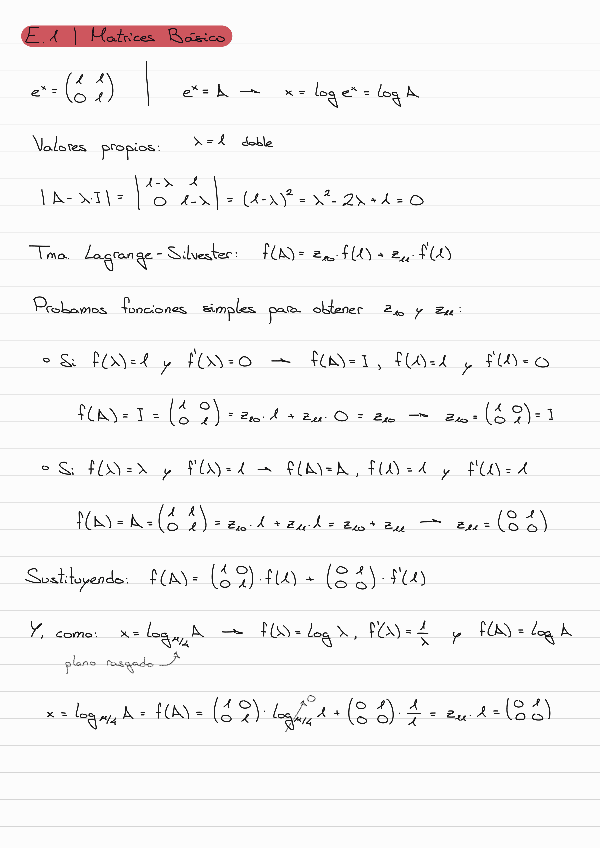 E.1 | Matrices Básico
eˣ = (1 1; 0 1) | eˣ = A → x = log eˣ = log A
Valores propios: λ = 1 doble
|A - λ·I| = |1-λ 1; 0 1-λ| = (1-λ)² = λ² - 2λ + 1 = 0
Tma. Lagrange-Silvester: f(A) = z₁₀·f(1) + z₁₁·f'(1)
Probamos funciones simples para obtener z₁₀ y z₁₁:
∘ Si f(λ) = 1 y f'(λ) = 0 → f(A) = I, f(1) = 1 y f'(1) = 0
f(A) = I = (1 0; 0 1) = z₁₀·1 + z₁₁·0 = z₁₀ → z₁₀ = (1 0; 0 1) = I
∘ Si f(λ) = λ y f'(λ) = 1 → f(A) = A, f(1) = 1 y f'(1) = 1
f(A) = A = (1 1; 0 1) = z₁₀·1 + z₁₁·1 = z₁₀ + z₁₁ → z₁₁ = (0 1; 0 0)
Sustituyendo: f(A) = (1 0; 0 1)·f(1) + (0 1; 0 0)·f'(1)
Y, como: x = log_π/4 A → f(λ) = log λ, f'(λ) = 1/λ y f(A) = log A
plano rasgado
x = log_π/4 A = f(A) = (1 0; 0 1)·log_π/4 1 ↗0 + (0 1; 0 0)·1/1 = z₁₁·1 = (0 1; 0 0)